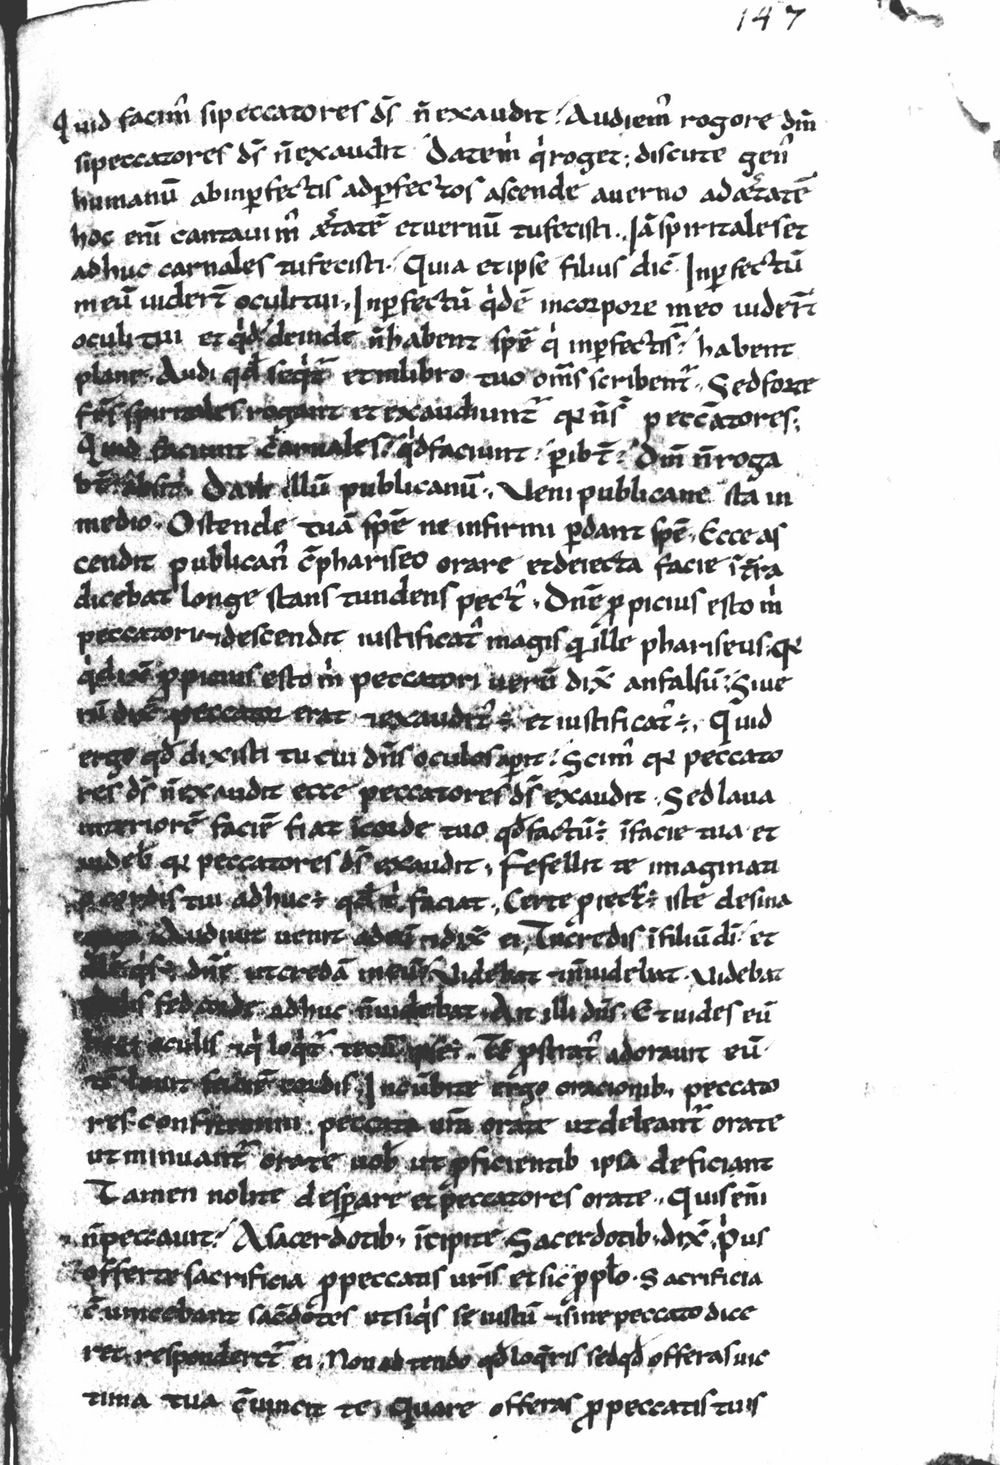 147
Quid facim̄ si peccatores ds̄ n̄ exaudit? Audiem̄ rogare dm̄
si peccatores ds̄ n̄ exaudit? Datem̄ q̇ roget; discute gen̄
humanū ab inꝑfectis ad ꝑfectos ascende a uerno ad æstatē
hoc enī cantauim̄ æstatē et uernū tu fecisti. Iā spiritales et
adhuc carnales tu fecisti. Quia et ipse filius dic̄. Inꝑfectū
meū uidert̄ oculi tui. Inꝑfectū q̇dē in corpore meo uidert̄
oculi tui et q̇d deinde n̄ habent spē q̇ inꝑfecti s̄? habent
plane. Audi qd̄ seq̇t̄ et in libro tuo om̄s scribent̄. Sed forte
fr̄s spiritales rogant et exaudiunt̄ qꝛ n̄ s̄ peccatores;
Quid faciunt carnales? q̇d faciunt? ꝑibt̄? Dm̄ n̄ roga
bt̄? absit. Da illū publicanū. Veni publicane sta in
medio. Ostende tuā spē ne infirmi ꝑdant spē. Ecce as
cendit publican̄ c̄ phariseo orare et deiecta facie ī t̄ra
dicebat longe stans tundens pect̄. Dn̄e ꝓpicius esto m̄
peccatori. descendit iustificat̄ magis q̄ ille phariseus. qꝛ
q̇ dixit ꝓpicius esto m̄ peccatori uerū dix̄ an falsū? Si ue
rū dix̄ peccator erat ⁊ exaudit̄ ÷ et iustificat̄ ÷. Quid
ergo qd̄ dixisti tu cui dn̄s oculos aꝑit? Scim̄ qꝛ peccato
res ds̄ n̄ exaudit ecce peccatores ds̄ exaudit. Sed laua
interiorē faciē fiat ī corde tuo qd̄ factū ÷ ī facie tua et
uideb̄ qꝛ peccatores ds̄ exaudit. Fefellit te imaginati
o cordis tui adhuc ÷ qd̄ t̄ faciat. Certe ꝓiect̄ ÷ iste de sina
goga Audiuit uenit ad eū ⁊ dix̄ ei. Tu credis ī filiū di? et
ille q̇s ÷ dn̄e ut credā in eū? Videbat ⁊ n̄ uidebat. Videbat
oculis sed corde adhuc n̄ uidebat. Ait illi dn̄s. Et uides eū
oculis ⁊ q̇ loq̇t̄ tecū ipse ÷. Tē ꝓstrat̄ adorauit eū.
tē lauit faciē cordis. Incūbite ergo orationib. peccato
res. confitemini peccata ur̄a orate ut deleant̄ orate
ut minuant̄ orate uob̄ ut ꝓficientib ipsa deficiant
Tamen nolite desꝑare et peccatores orate. Quis enī
n̄ peccauit? A sacerdotib. īcipite. Sacerdotib. dix̄. pi̇us
offerte sacrificia ꝓ peccatis ur̄is et sic ꝓ ppl̄o. Sacrificia
c̄uincebant sac̄dotes ut si q̇s se iustū ⁊ sine peccato dice
ret. responderet̄ ei. Non adtendo qd̄ loq̄ris sed qd̄ offeras uic
tima tua c̄uincit te. Quare offeras ꝓ peccatis tuis